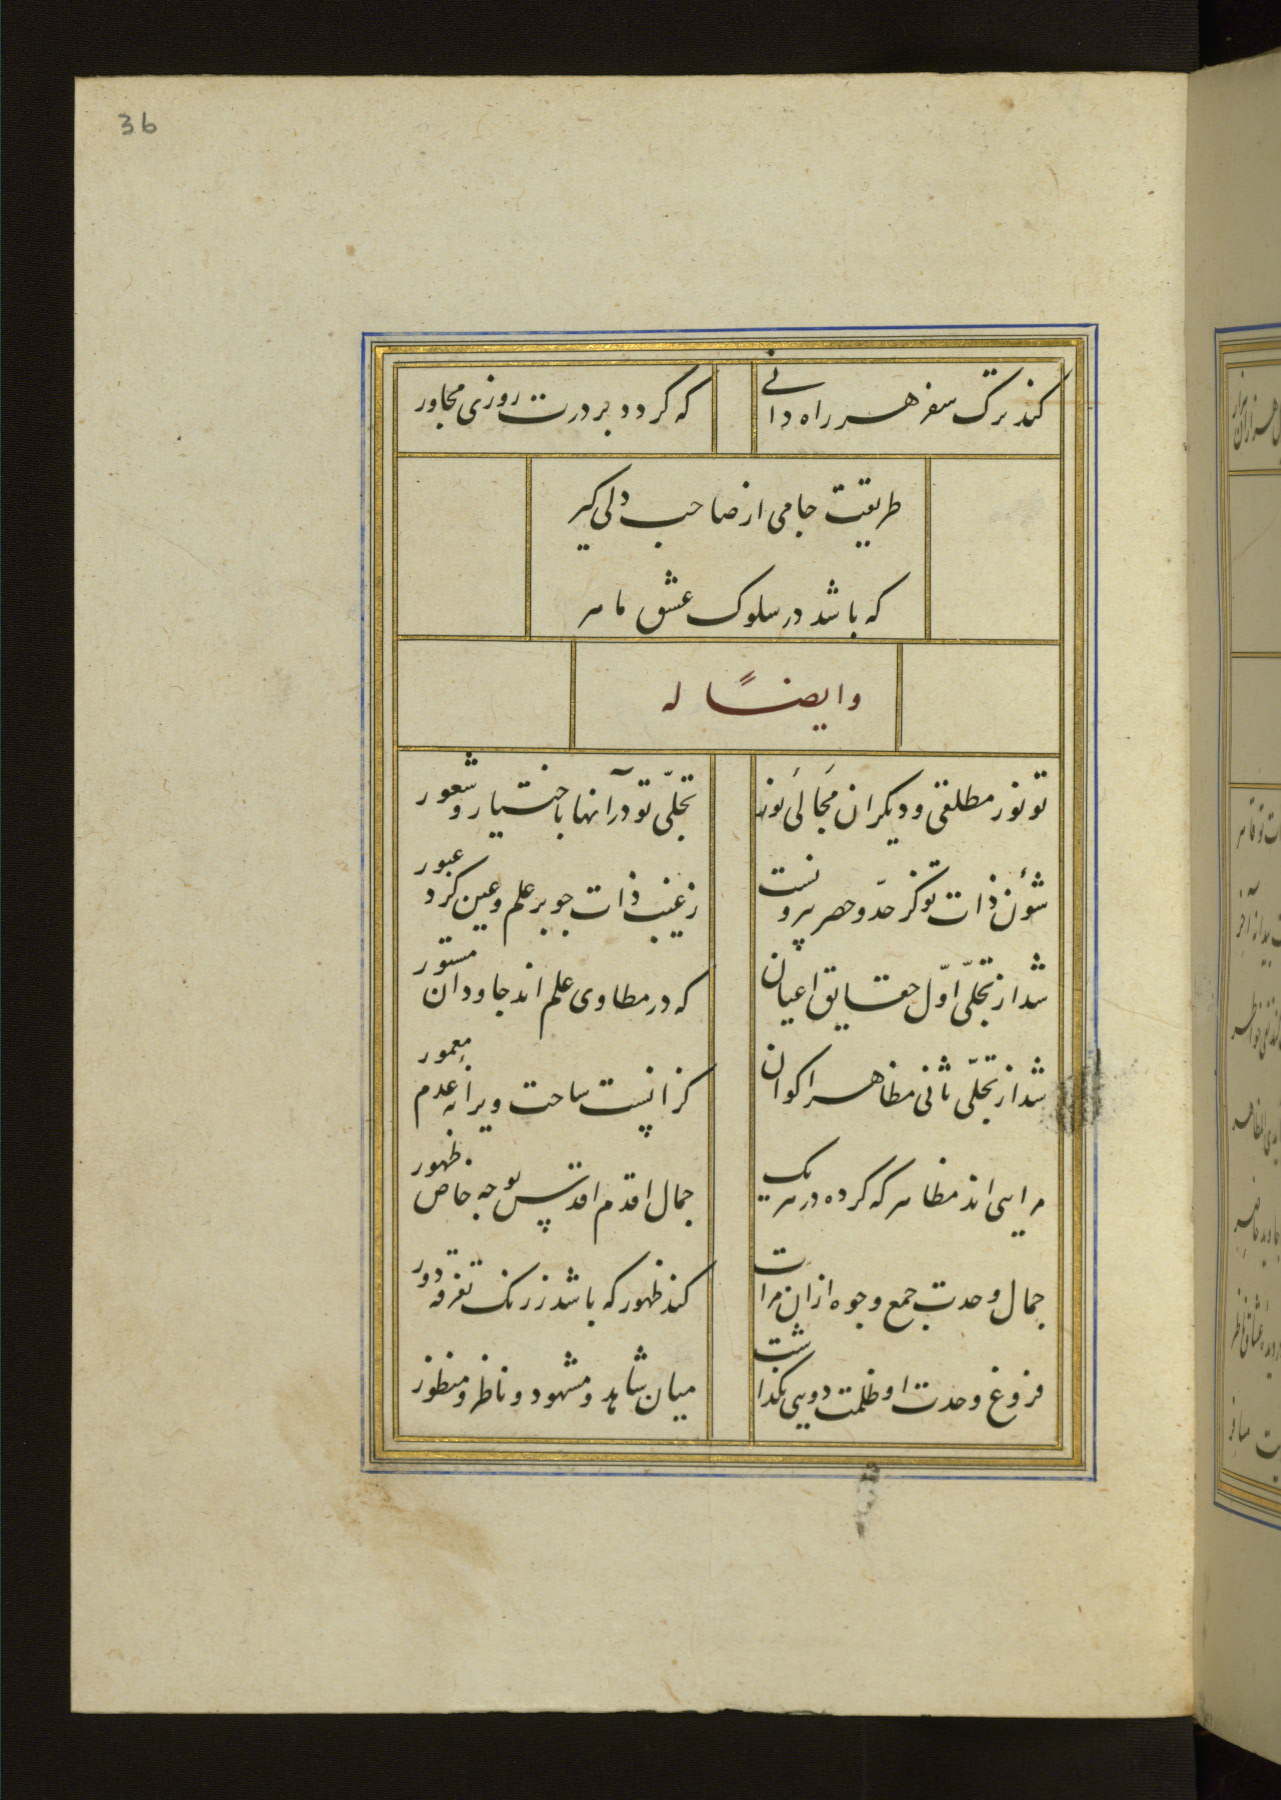 36
کند ترک سفر هر راه دانی
که گردد بر درت روزی مجاور
طریقت جامی از صاحب دلی گیر
که باشد در سلوک عشق ماهر
وایضاً له
تو نور مطلقی و دیگران مَجالَی نور
تجلّی تو در آنها باختیار و شعور
شؤن ذات تو کز حدّ و حصر بیرونست
ز غیب ذات چو بر علم و عین کرد عبور
شد از تجلّی اوّل حقایق اعیان
که در مطاوی علم اند جاودان مستور
شد از تجلّی ثانی مظاهر اکوان
کزانیست ساحت ویرانهٔ عدم معمور
مرایی اند مظاهر که کرده در هر یک
جمال اقدم اقدس بوجه خاص ظهور
جمال وحدت جمع وجوه ازان مرات
کند ظهور که باشد ز رنگ تفرقه دور
فروغ وحدت او ظلمت دویی نگذاشت
میان شاهد و مشهود و ناظر و منظور